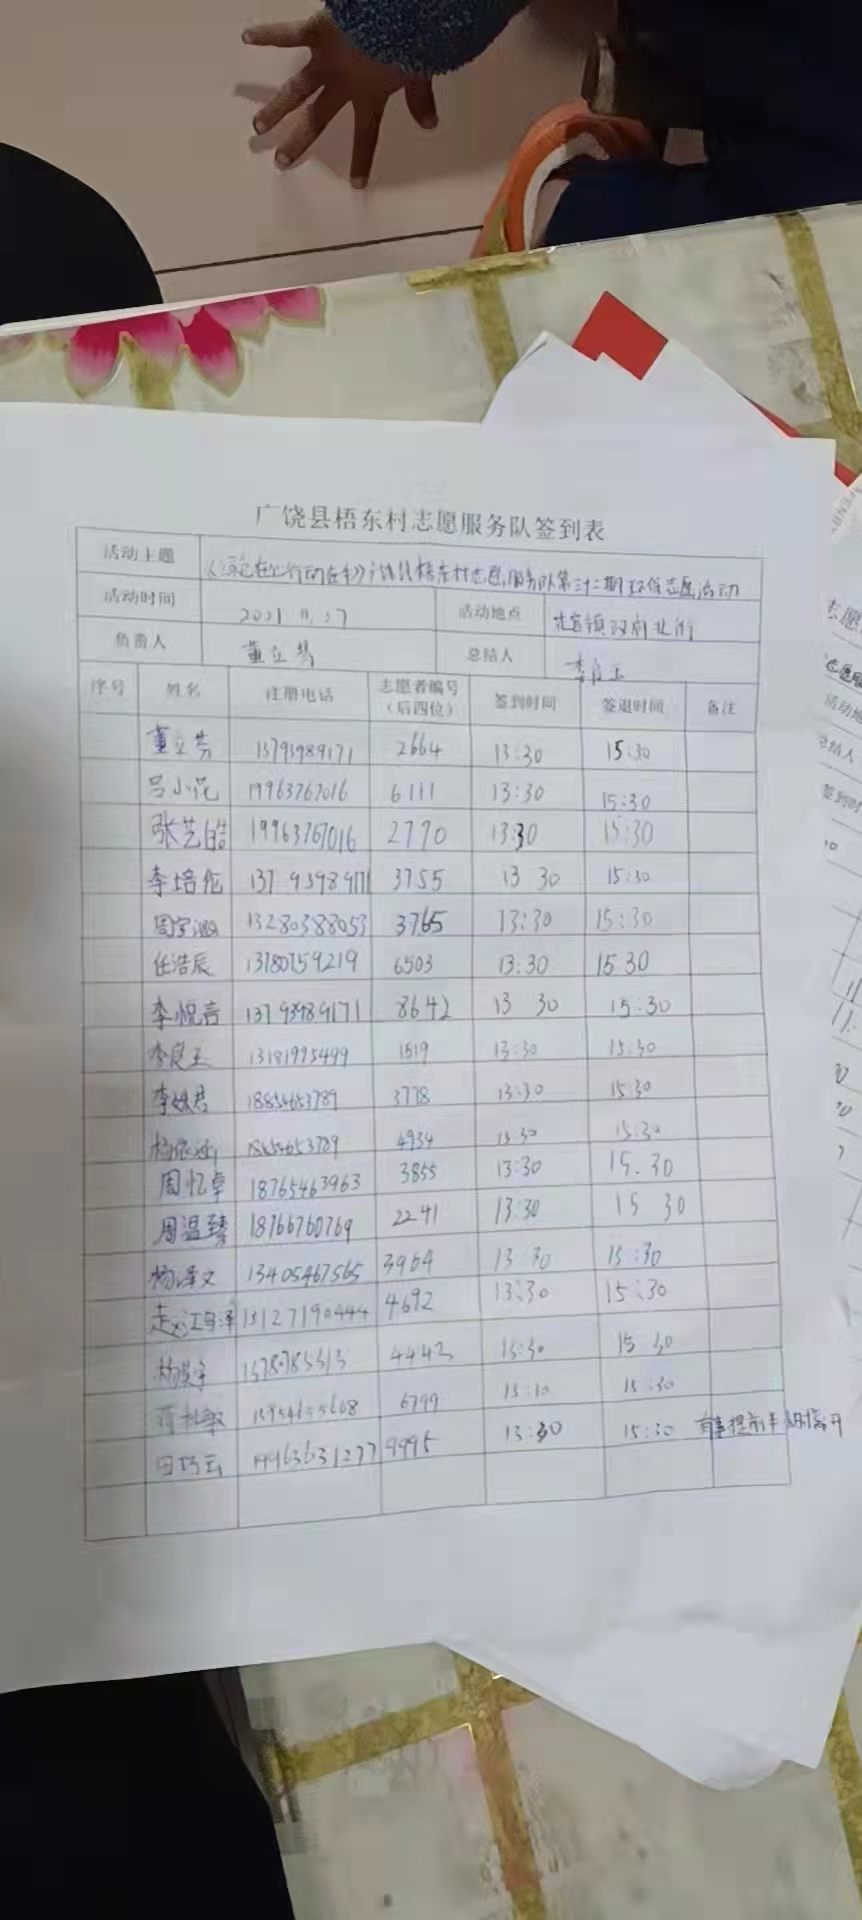 广饶县梧东村志愿服务队签到表
活动主题 广饶县梧东村志愿服务队第三十二期环保志愿活动
活动时间 2021.11.27 活动地点 镇政府北街
负责人 董立芳 总结人 李良玉
序号 姓名 注册电话 志愿者编号（后四位） 签到时间 签退时间 备注
董立芳 13793989171 2664 13:30 15:30
吕小花 19963767016 6111 13:30 15:30
张艺皓 19963767016 2770 13:30 15:30
李培伦 13793989171 3755 13 30 15:30
周宇 13280388053 3765 13:30 15:30
任浩辰 13780759219 6503 13:30 15 30
李悦喜 13793989171 8642 13 30 15:30
李良玉 13181995499 1519 13:30 15:30
李姝君 18854653789 3778 13:30 15:30
杨依 18854653789 4934 13:30 15:30
周忆卓 18765463963 3855 13:30 15.30
周温臻 18766760769 2241 13:30 15 30
杨泽文 13405467565 3964 13 30 15:30
13127190444 4692 13:30 15:30
4442 13:30 15:30
6799 15:30
田巧云 19963631277 9995 13:30 15:30 有事提前半